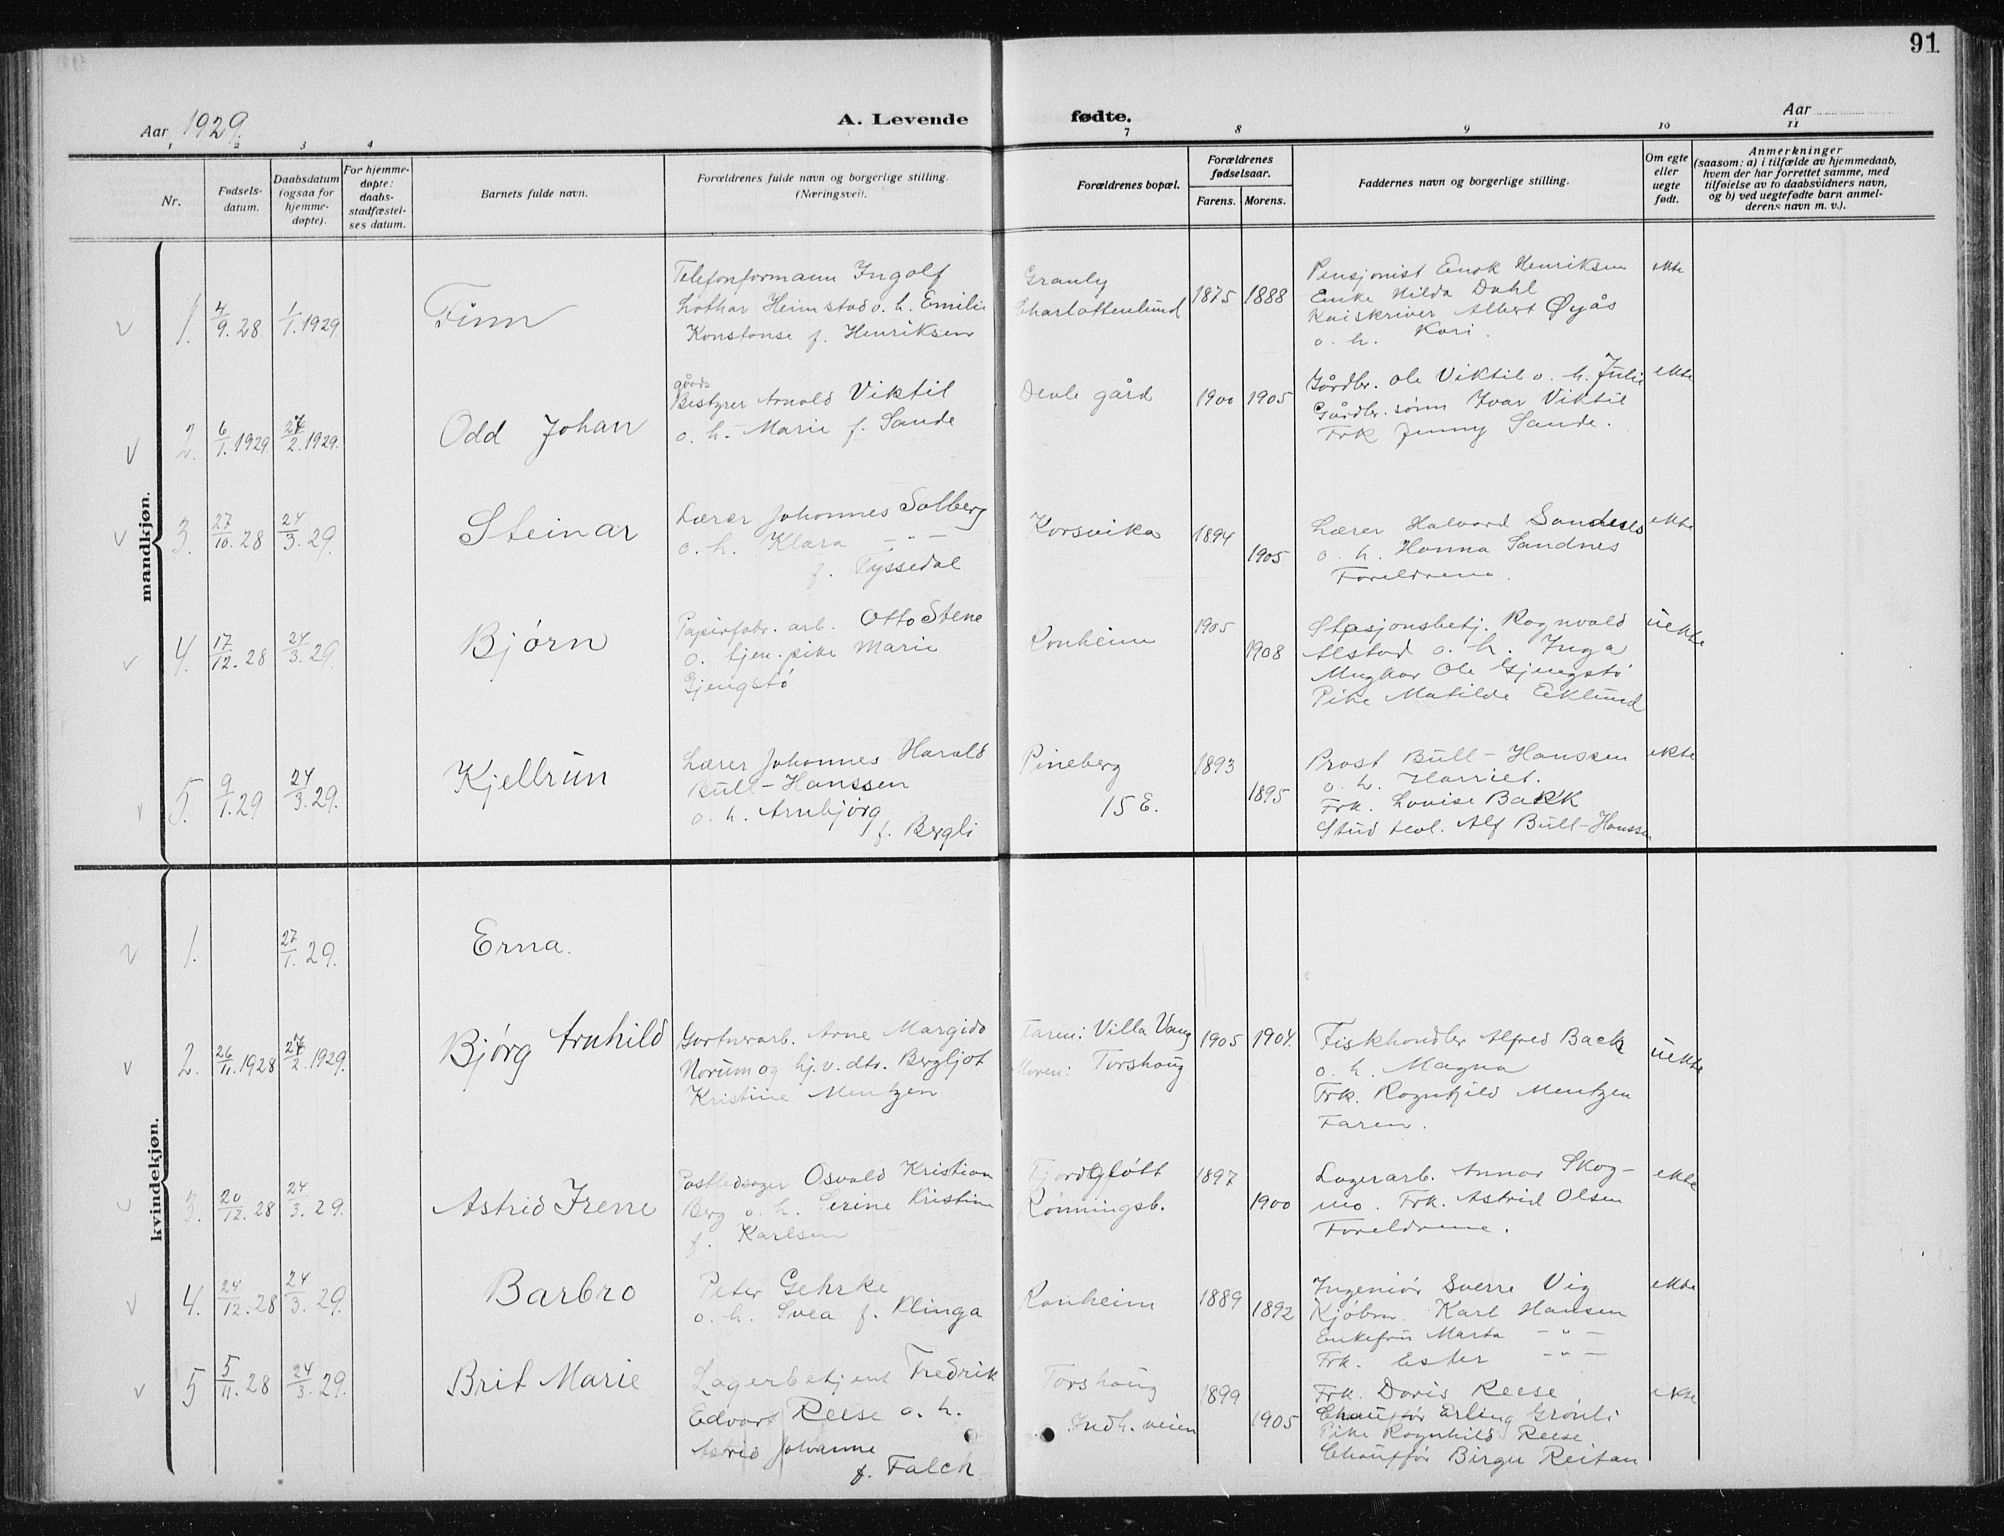 91
Aar 1929.
A. Levende fødte.
Aar
1 2 3 4 7 8 9 10 11
Nr.
Fødsels-
datum.
Daabsdatum
(ogsaa for
hjemme-
døpte).
For hjemme-
døpte:
daabs-
stadfæstel-
ses datum.
Barnets fulde navn.
Forældrenes fulde navn og borgerlige stilling.
(Næringsvei).
Forældrenes bopæl.
Forældrenes
fødselsaar.
Farens. Morens.
Faddernes navn og borgerlige stilling.
Om egte
eller
uegte
født.
Anmerkninger
(saasom: a) i tilfælde av hjemmedaab,
hvem der har forrettet samme, med
tilføielse av to daabsvidners navn,
og b) ved uegtefødte barn anmel-
derens navn m. v.).
mandkjøn.
1. 4/9.28 1/1.1929 Finn
Telefonformann Ingolf
Lothar Heimstad o. h. Emilie
Konstanse f. Henriksen
Granly
Charlottenlund
1875 1888
Pensjonist Enok Henriksen
Enke Hilda Dahl
Kaiskriver Albert Øyås
o. h. Kari.
ekte
2. 6/1.1929. 24/2.1929. Odd Johan
gårds
Bestyrer Arnold Viktil
o. h. Marie f. Sande
Devle gård
1900 1905
Gårdbr. Ole Viktil o. h. Julie
Gårdbr. sønn Ivar Viktil
Frk Jenny Sande.
ekte
3. 27/10.28 24/3.29. Steinar
Lærer Johannes Solberg
o. h. Klara - " -
f. Tyssedal
Korsvika
1894
1905
Lærer Halvard Sandnes
o. h. Hanna Sandnes
Foreldrene.
ekte
4. 17/12.28 24/3.29. Bjørn
Papirfabr. arb. Otto Stene
o. tjen. pike Marie
Gjengstø
Ranheim
1905
1908
Stasjonsbetj. Ragnvald
Alstad o. h. Inga
Ungkar Ole Gjengstø
Pike Matilde Eklund
uekte
5. 9/1.29 24/3.29. Kjellrun
Lærer Johannes Harald
Bull-Hanssen
o. h. Arnbjørg
f. Bergli
Pineberg
15 E.
1893
1895
Prost Bull-Hanssen
o. h. Harriet.
Frk. Lovise Backk
Stud teol. Alf Bull-Hanssen
ekte
kvindekjøn.
1. 27/1.29. Erna.
2. 26/11.1928 24/2.1929. Bjørg Arnhild
Gartnerarb. Arne Margido
Norum og hj.v. dtr. Bergljot
Kristine Mentzen
Faren: Villa Vang
Moren: Torshaug
1905 1904.
Fiskhandler Alfred Back
o. h. Magna
Frk. Ragnhild Mentzen
Faren.
uekte
3. 20/12.28 24/3.29. Astrid Irene
Postledsager Osvald Kristian
Berg o. h. Serine Kristine
f. Karlsen
Fjordgløtt
Rønningsb.
1897
1900
Lagerarb. Annar Skog-
mo. Frk. Astrid Olsen
Foreldrene.
ekte
4. 24/12.28 24/3.29. Barbro
Peter Gehrke
o. h. Svea f. Klinga
Ranheim
1889
1892
Ingeniør Sverre Vig
Kjøbm. Karl Hansen
Enkefru Marta - " -
Frk. Ester - " -
ekte
5 5/11.28 24/3.29. Brit Marie
Lagerbetjent Fredrik
Edvart Reese o. h.
Astrid Johanne
f. Falch
Torshaug
Indh. veien
1899
1905
Frk. Doris Reese
Chauffør Erling Grønli
Pike Ragnhild Reese
Chauffør Birger Reitan
ekte